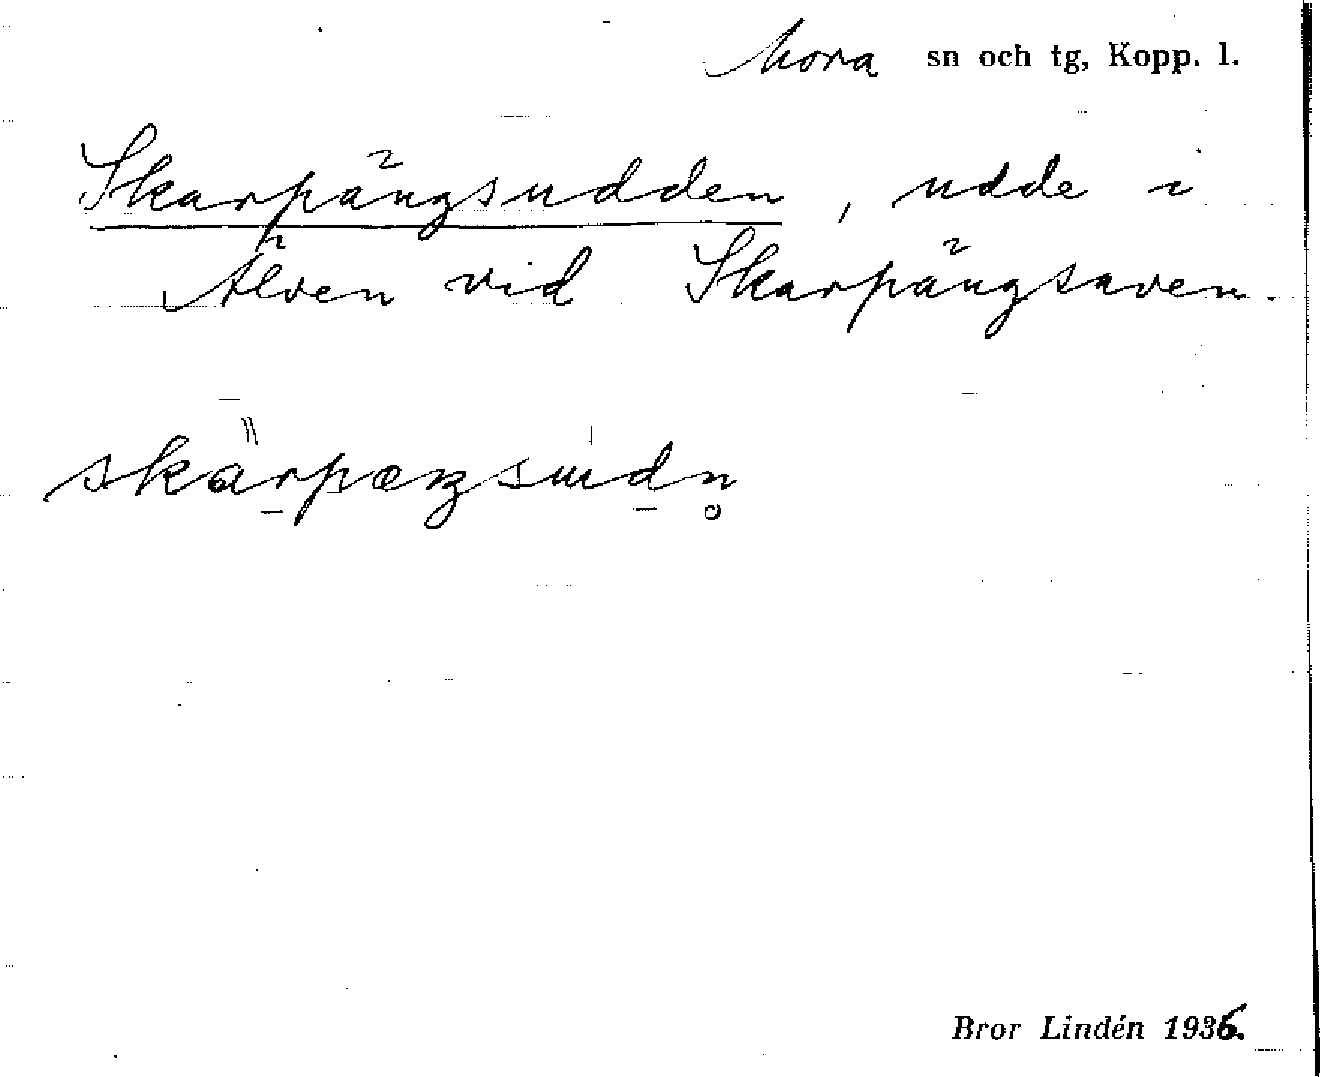 Mora sn och tg, Kopp. l.
Skarpängsudden, udde i
Älven vid Skarpängsaven.
skàrpæŋsùdn̥
Bror Lindén 1936.